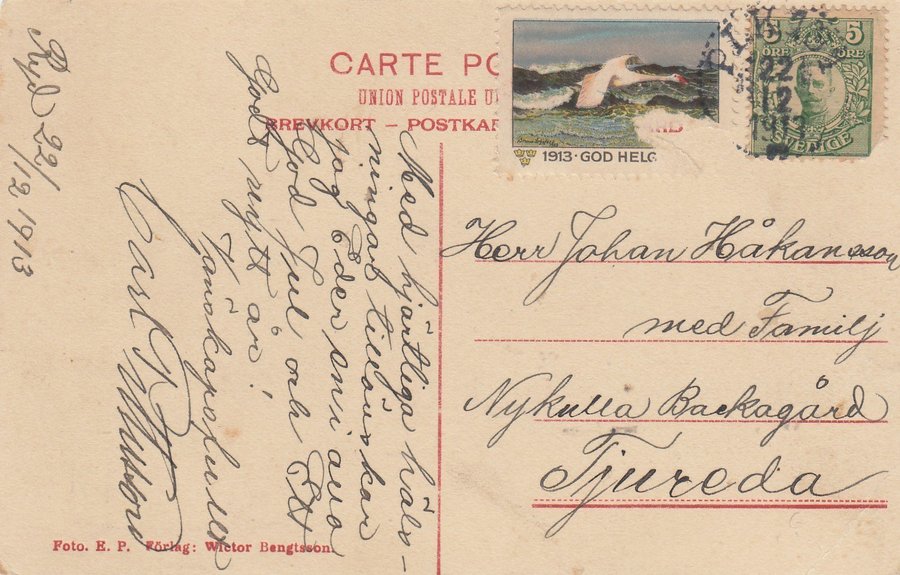 CARTE PO
UNION POSTALE U
BREVKORT – POSTKA
1913 · GOD HELG
5 5
ÖRE ÖRE
SVERIGE
22
12
1913
Ryd 22/12 1913
Med hjärtliga häls-
ningar tillönskar
jag Eder små alla
God Jul och Ett
Godt nytt år!
Vänskapsfullt
Carl
Herr Johan Håkansson
med Familj
Nykulla Backagård
Tjureda
Foto. E. P. Förlag: Wictor Bengtsson.